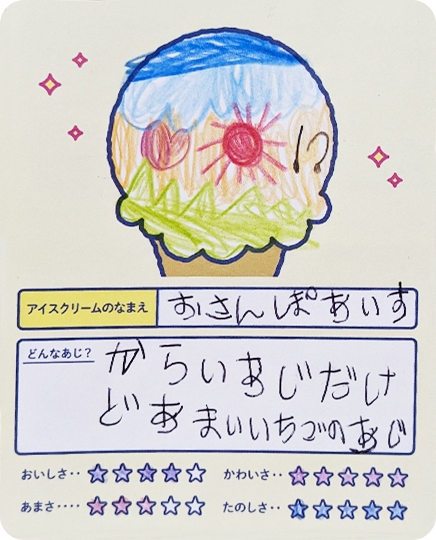 アイスクリームのなまえ
おさんぽあいす
どんなあじ？
からいあじだけ
どあまいいちごのあじ
おいしさ‥ ★★★★☆
かわいさ‥ ★★★★★
あまさ‥‥ ★★★☆☆
たのしさ‥ ★★★★★